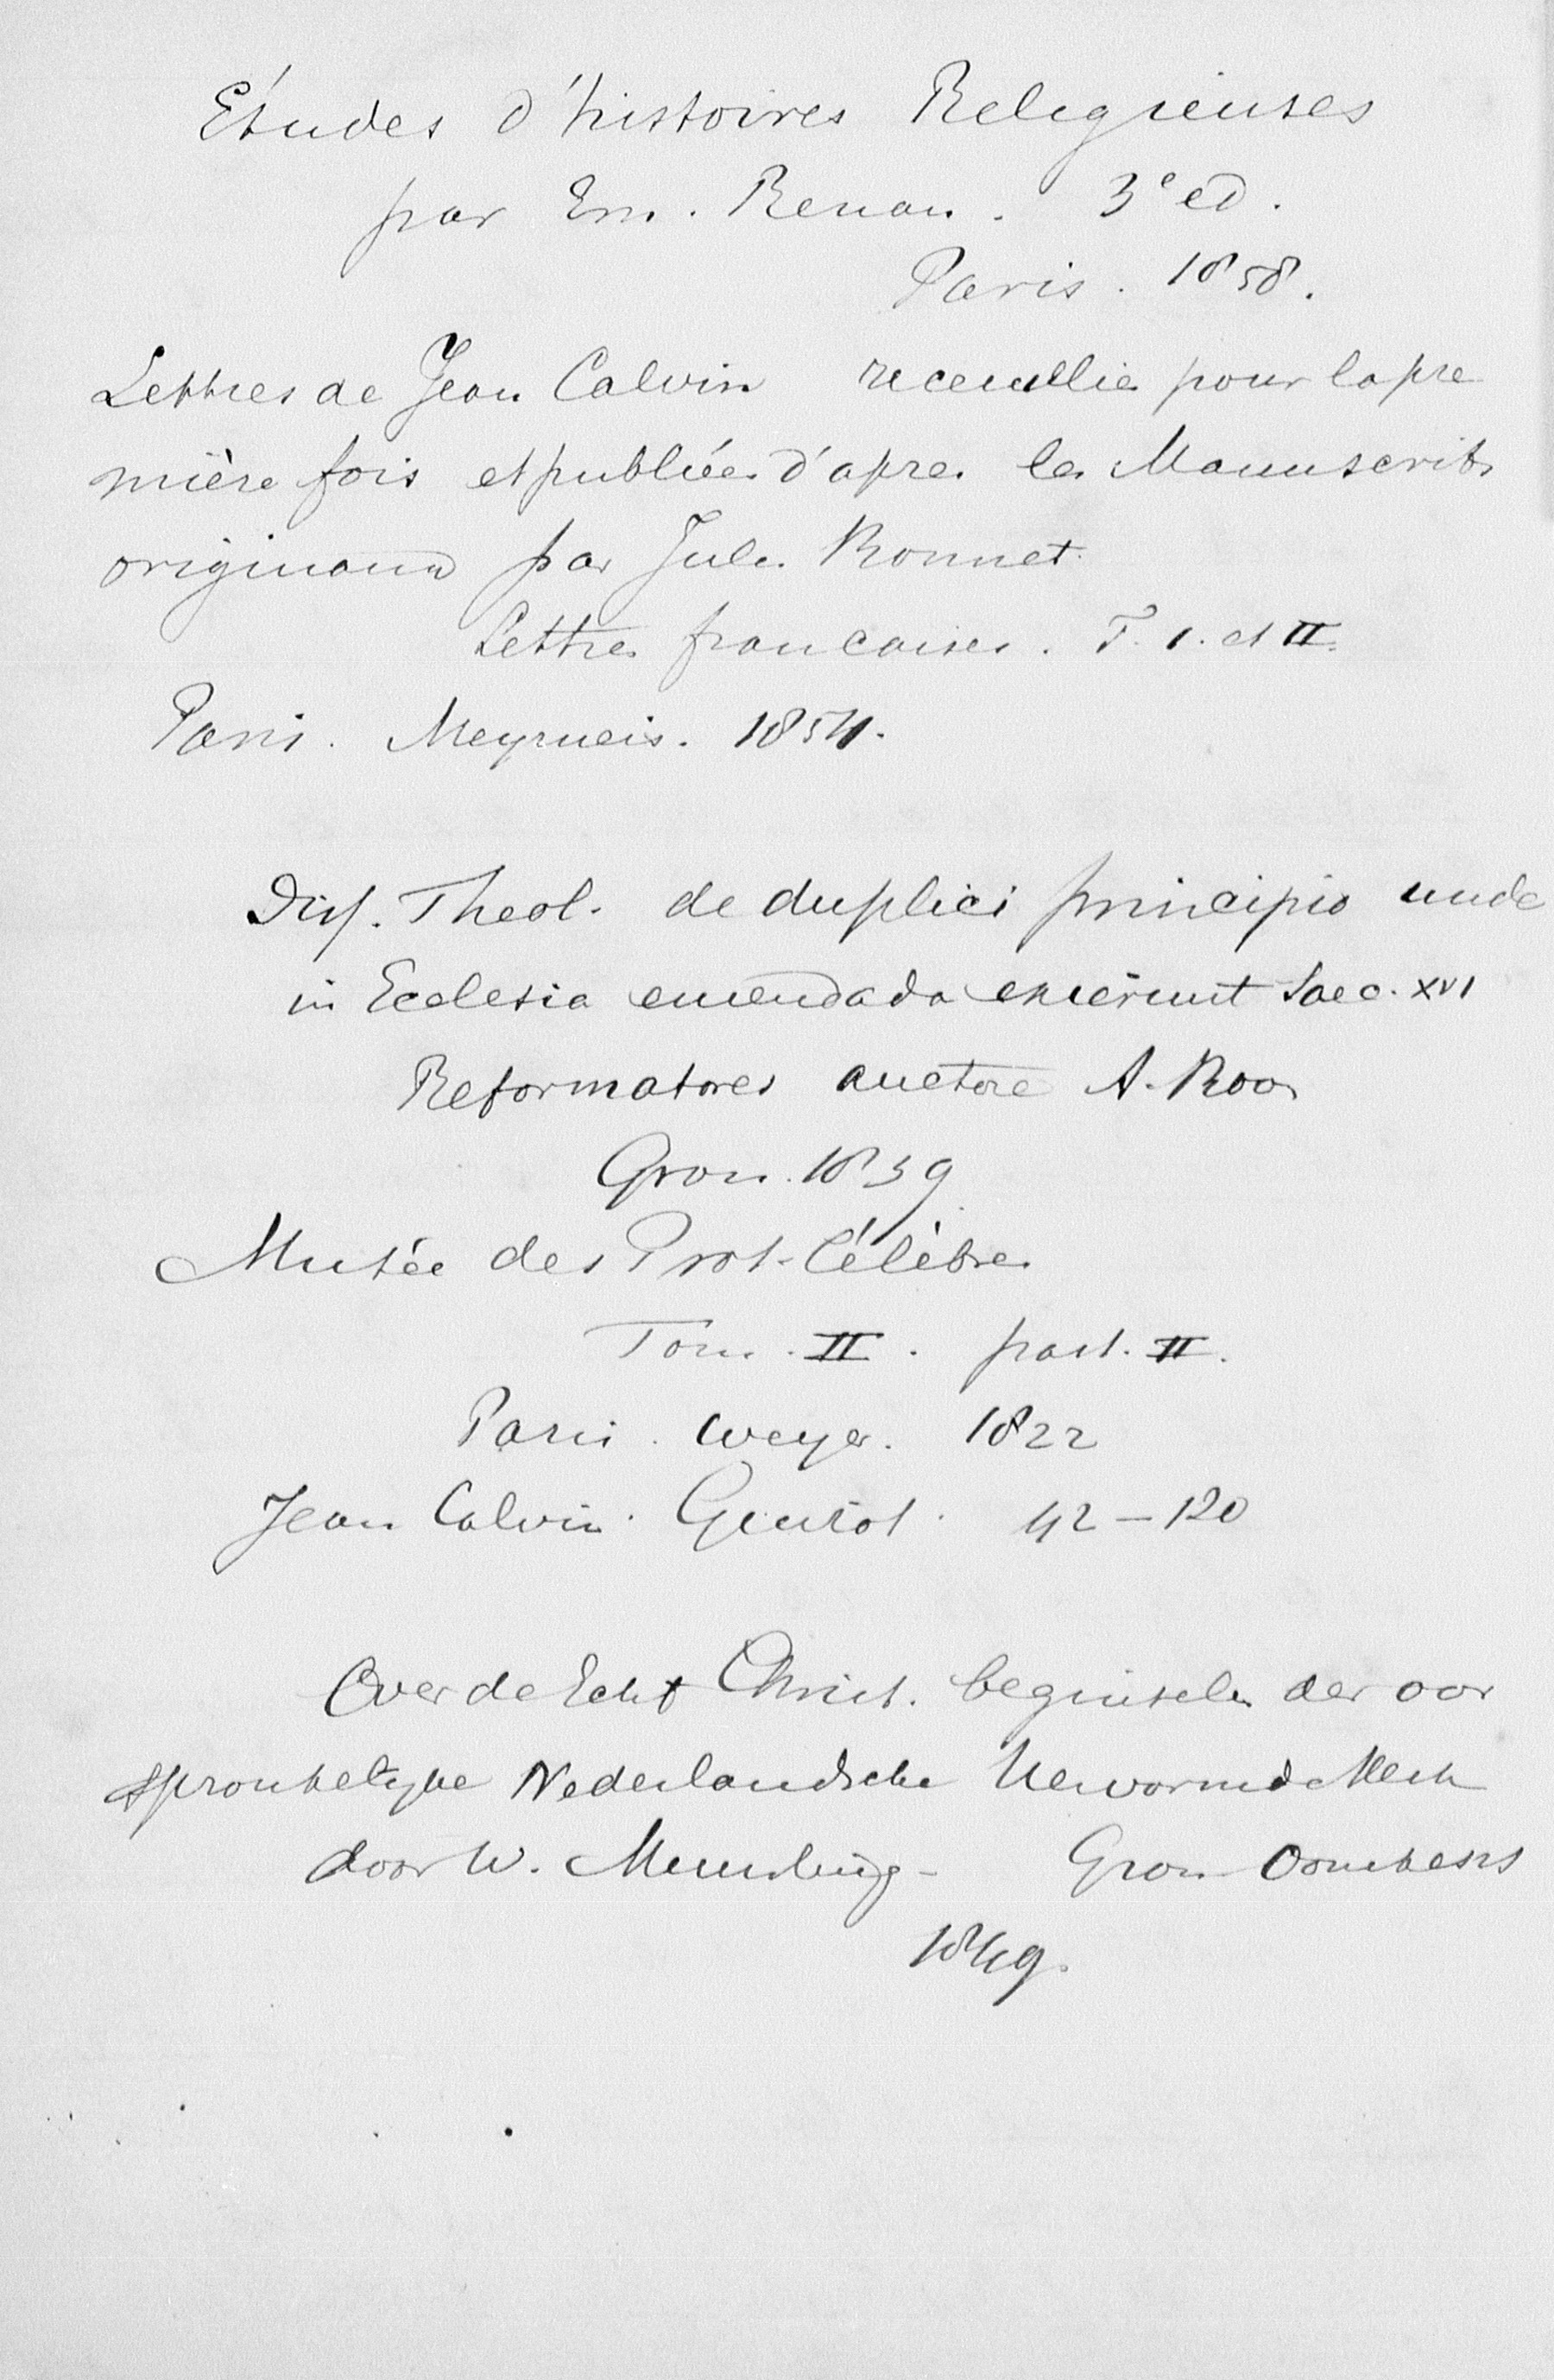 Études d'histoires Religieuses
par Em. Renan. 3e ed.
Paris. 1858.
Lettres de Jean Calvin receullies pour la pre
mière fois et publiées d'apres les Manuscrits
originaux par Jules Bonnet.
Lettres francaises. T. 1. et II.
Paris. Meyrueis. 1854.
Disp. Theol. de duplici principio unde
in Ecclesia emendada exierunt Saec. XVI
Reformatores auctore A. Roos
Gron. 1839
Musée des Prot. Célèbres
Tom. II. part. II.
Paris. Weyer. 1822
Jean Calvin. Guizot. 42-120
Over de Echt Christ. beginselen der oor
spronkelyke Nederlandsche Hervormde Kerk
door W. Muurling- Gron Oomkens
1849.